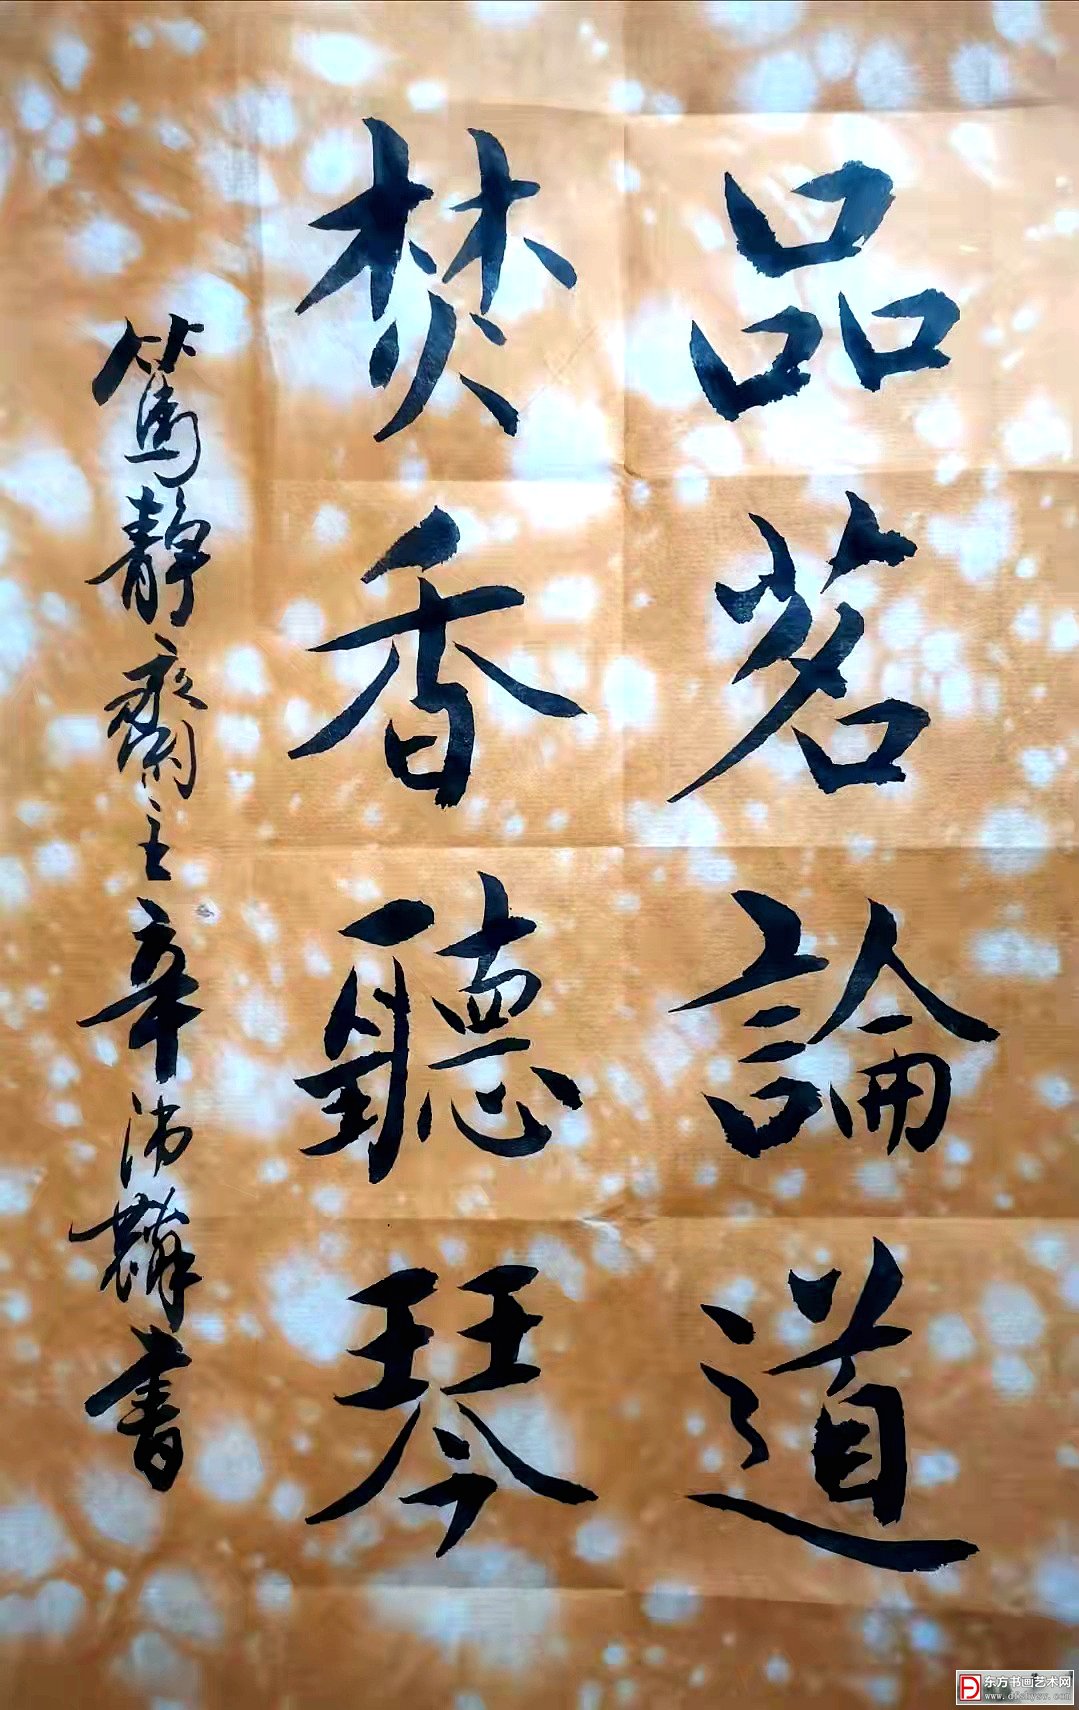 品茗論道
焚香聽琴
篤靜齋主辛沛書
东方书画艺术网
www.dfshysw.com